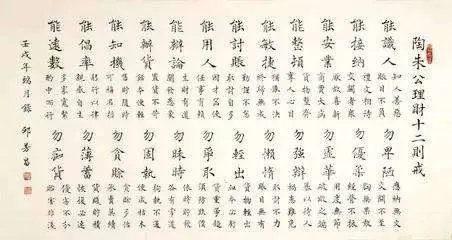 陶朱公理財十二則戒
能識人 知人善惡 賬目不負 勿卑陋 應納無文 交關不至
能接納 禮文相待 交關者眾 勿優柔 胸無果敢 經營不振
能安業 厭故喜新 商賈大病 勿虛華 用度無節 破敗之端
能整頓 貨物整齊 奪人心目 勿強辯 暴以待人 禍患難免
能敏捷 猶豫不決 終歸無成 勿懶惰 取討不力 賬目無有
能討賬 勤謹不怠 取討自多 勿輕出 貨物輕出 血本必虧
能用人 因才器使 任事有賴 勿爭取 貨重爭趨 須防跌價
能辯論 生財有道 開發愚蒙 勿昧時 依時貯發 各有常道
能辦貨 置貨不苛 蝕本便輕 勿固執 拘執不通 便成枯木
能知機 售貯隨時 可稱名哲 勿貪賒 貪賒多估 承賣莫續
能倡率 躬行以律 親感自生 勿薄蓄 貨賤貯積 恢復必速
能遠數 多寡寬緊 酌中而行 勿痴貨 優劣不分 貽害非淺
壬戌年端月錄